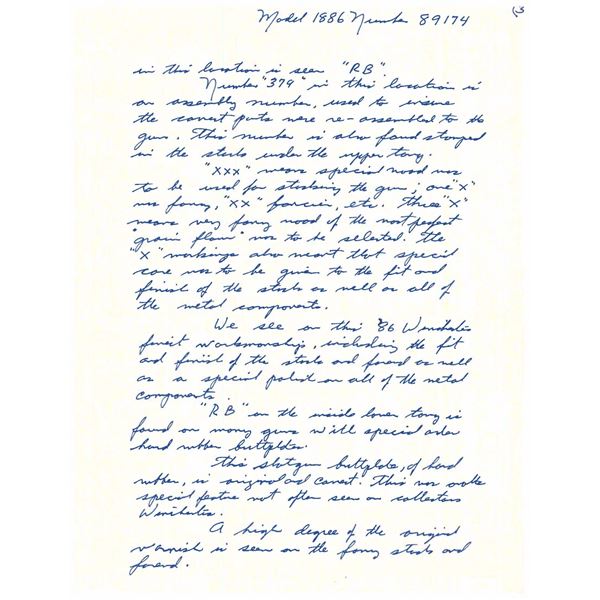 Model 1886 Number 89174
(3
in this location is seen "RB".
Number "379" in this location is
an assembly number, used to insure
the correct parts were re-assembled to the
gun. This number is also found stamped
in the stocks under the upper tang.
"XXX" means special wood was
to be used for stocking the gun; one "X"
was fancy, "XX" fancier, etc. Three "X"
means very fancy wood of the most perfect
"grain flow" was to be selected. The
"X" markings also meant that special
care was to be given to the fit and
finish of the stocks as well as all of
the metal components.
We see on this '86 Winchester
finest workmanship, including the fit
and finish of the stocks and forend as well
as a special polish on all of the metal
components.
"RB" on the inside lower tang is
found on many guns with special order
hard rubber buttplates.
This shotgun buttplate, of hard
rubber, is original and correct. This was another
special feature not often seen on collectors
Winchesters.
A high degree of the original
varnish is seen on the fancy stocks and
forend.